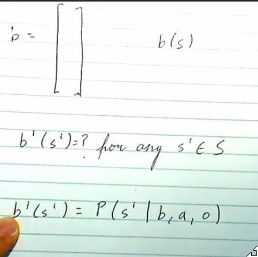 b = [ ] b(s)
b'(s')=? for any s' ∈ S
b'(s') = P(s' | b, a, o)